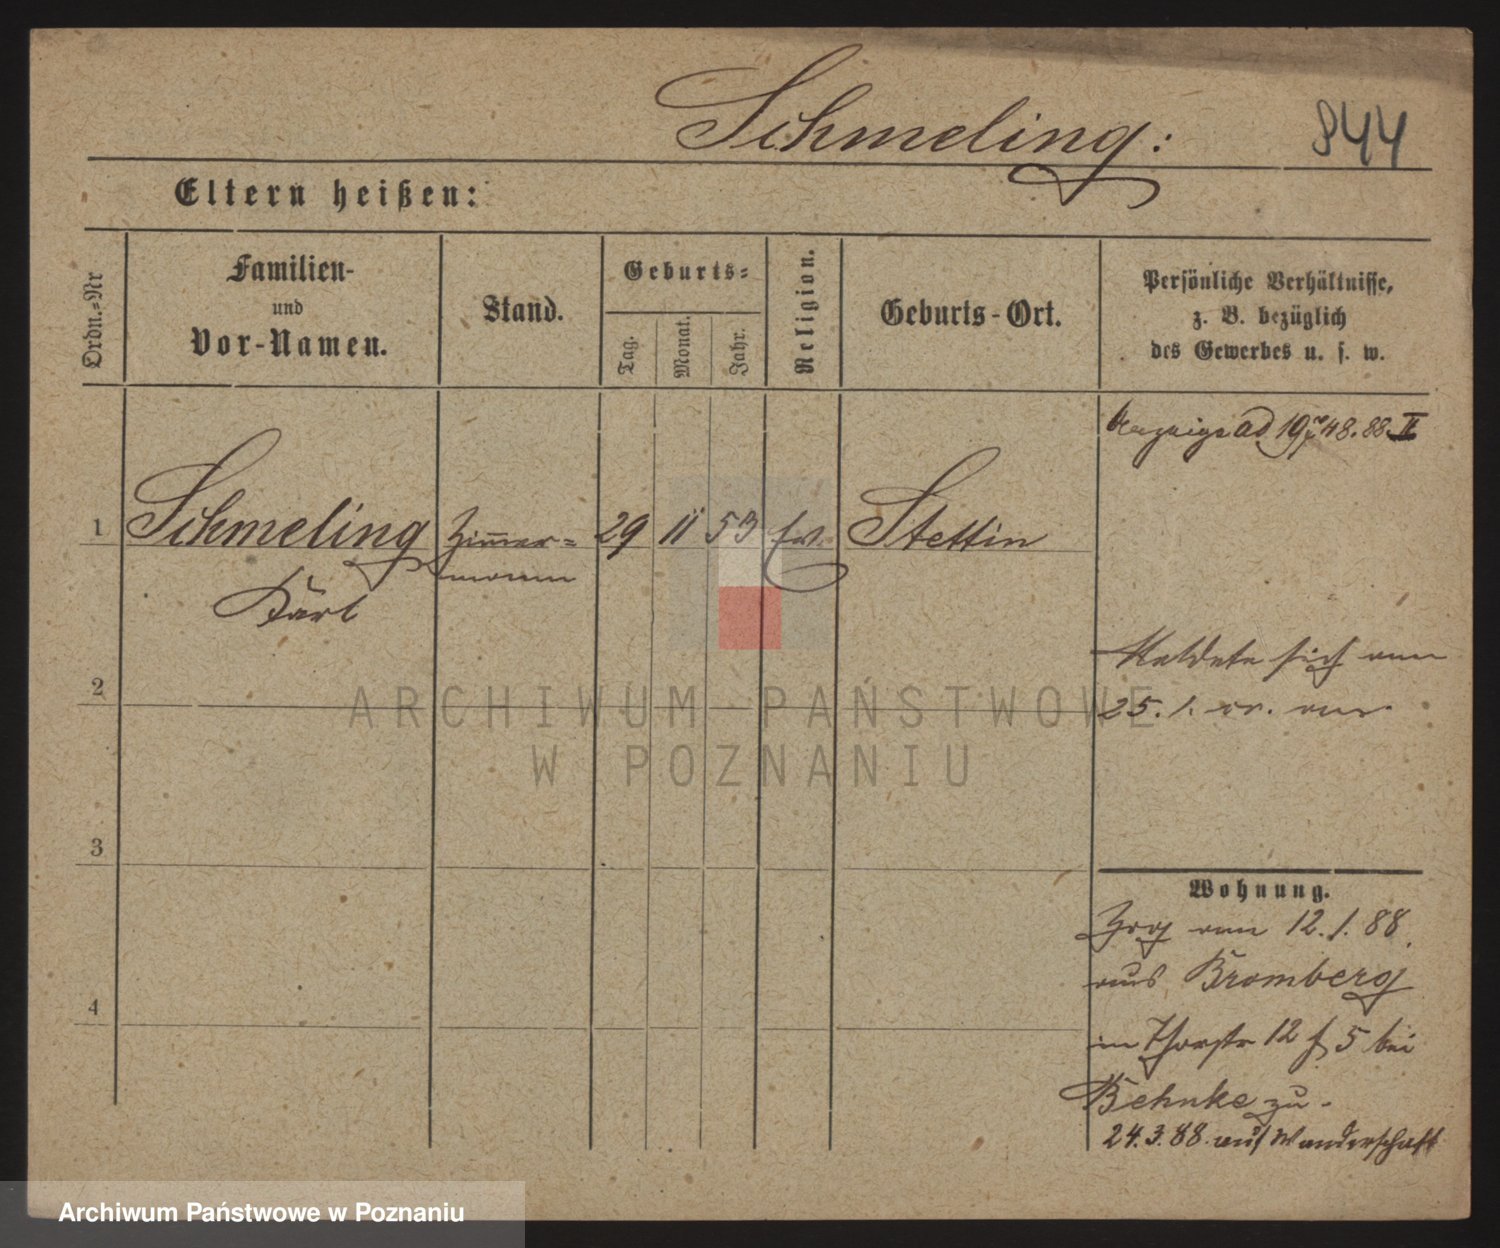 Schmeling:
844
Eltern heißen:
Ordn.-Nr
Familien-
und
Vor-Namen.
Stand.
Geburts-
Tag.
Monat.
Jahr.
Religion.
Geburts-Ort.
Persönliche Verhältnisse,
z. B. bezüglich
des Gewerbes u. s. w.
ad 19 48. 88. II
1
Schmeling
Karl
Zimmer-
mann
29
11
53
Stettin
Meldete sich am
25. 1. cr. an
2
3
4
ARCHIWUM PAŃSTWOWE
W POZNANIU
Wohnung.
Zog am 12. 1. 88.
aus Bromberg
im Thorstr 12 f 5 bei
Behnke zu.
24. 3. 88. auf Wanderschaft
Archiwum Państwowe w Poznaniu